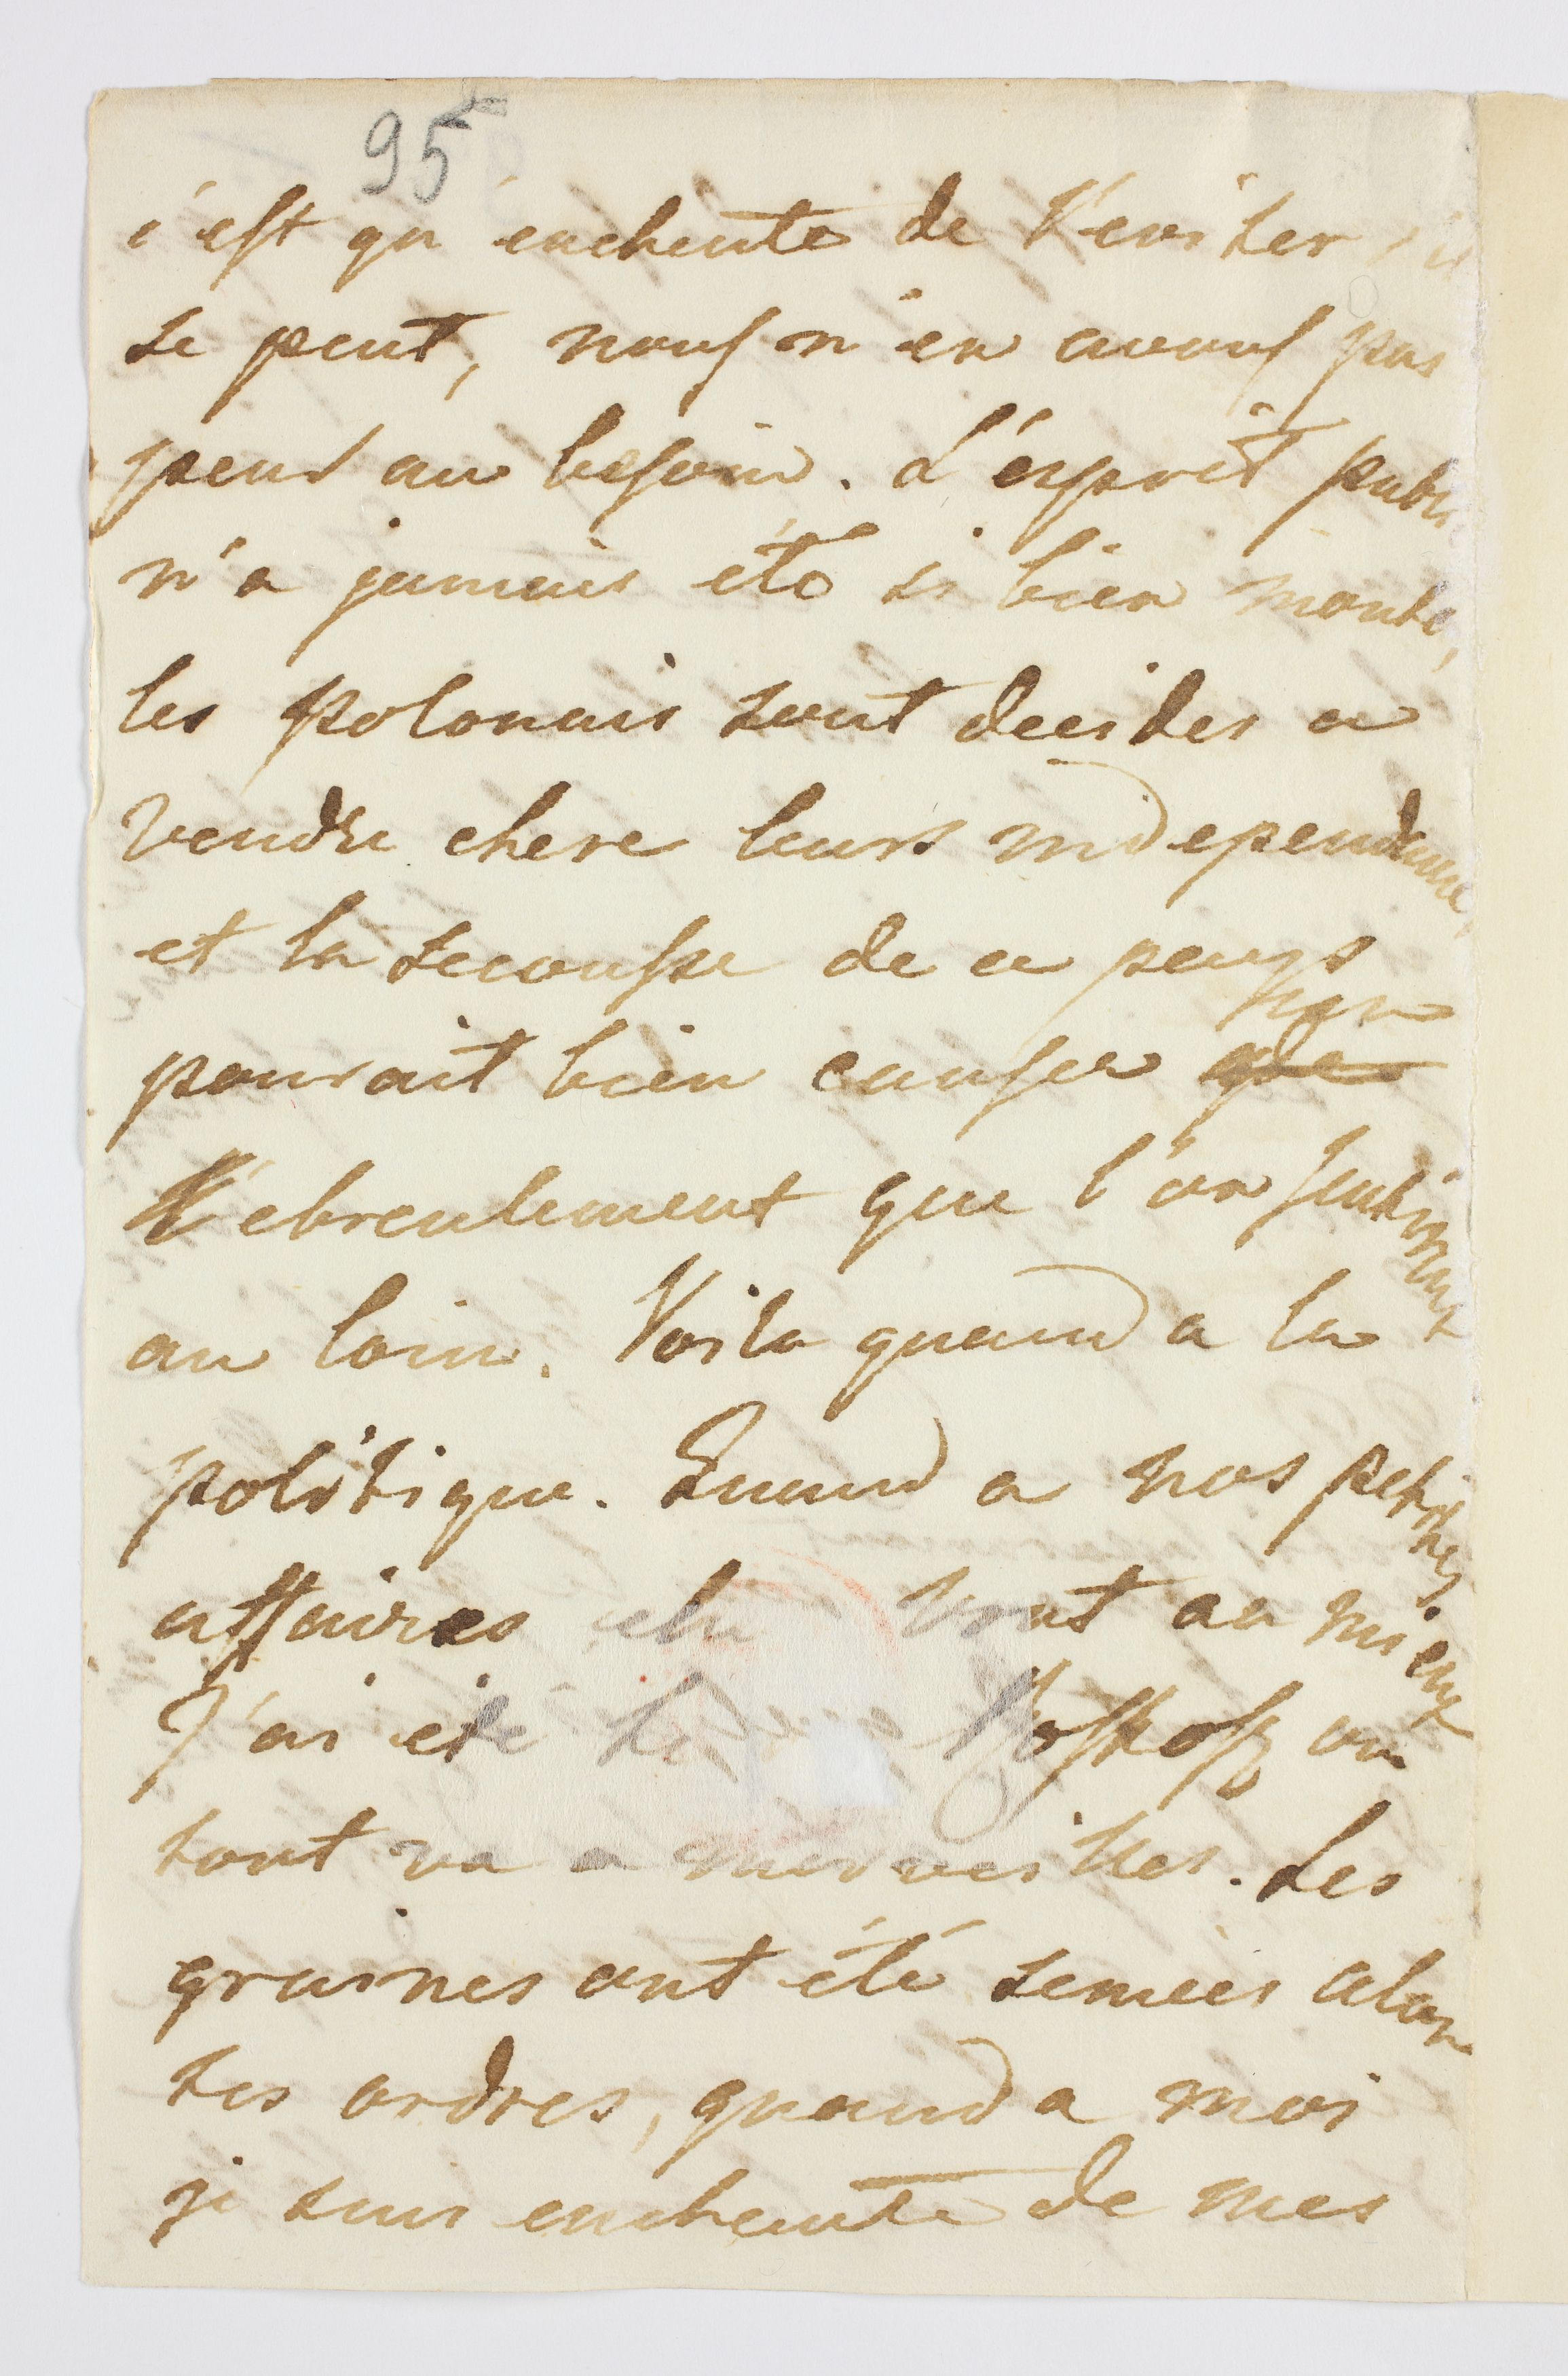 95
c'est qu'enchente de l'eviter s'il
se peut, nous n'en avons pas
peur au besoin. L'esprit publi
n'a jamais été si bien monte,
les polonais sont decides a
vendre chere leurs independance
et la secousse de ce peuys
pourait bien causer que un
l'ebreulement que l'on sentirait
au loin. Voila quand a la
politique. Quand a nos petites
affaires elle vont au mieux
J'ai été a Moskoff ou
tout va a merveilles. Les
graines ont été semees alon
tes ordres, quand a moi
je suis enchente de mes